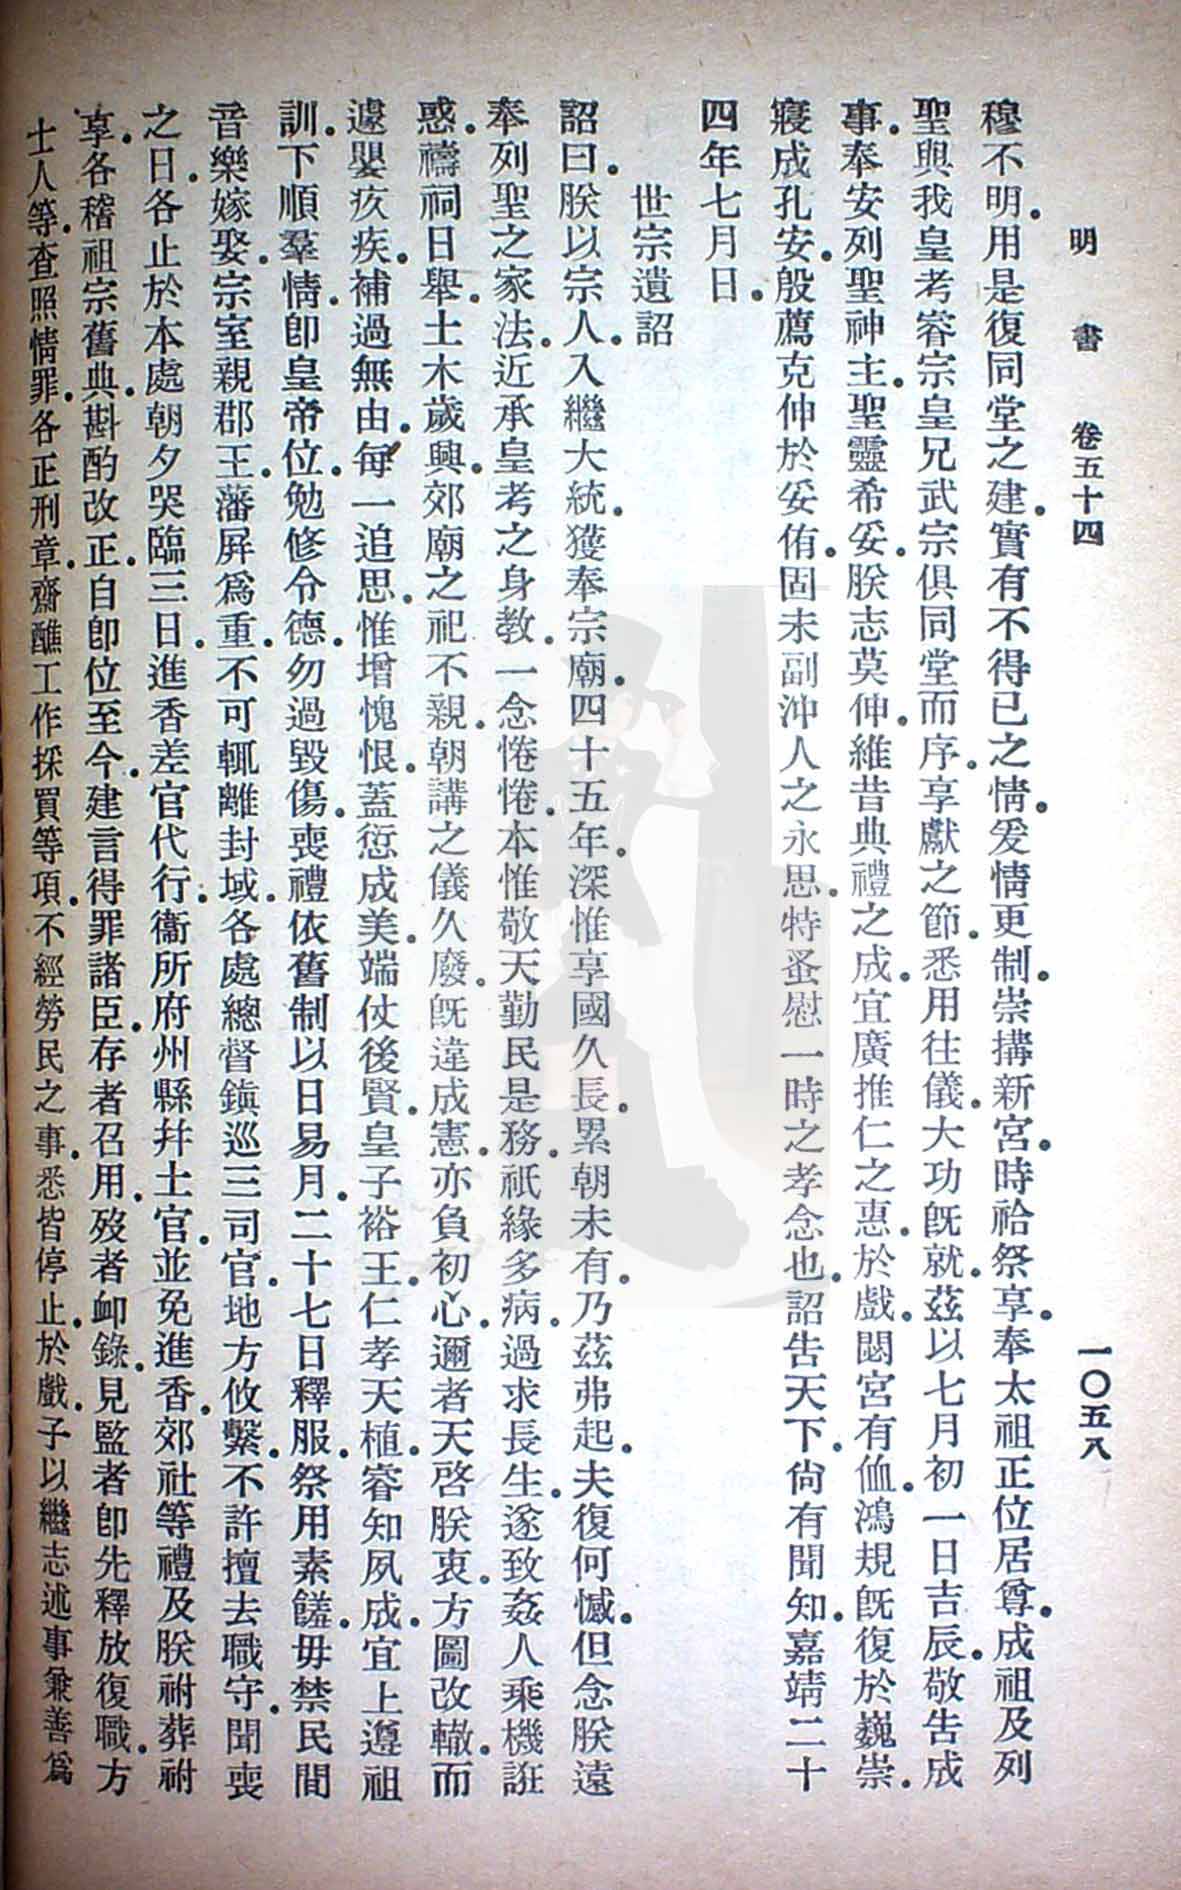 明書 卷五十四 一〇五八
穆不明.用是復同堂之建.實有不得已之情.爰情更制.崇搆新宮.時祫祭享.奉太祖正位居尊.成祖及列
聖與我皇考睿宗皇兄武宗俱同堂而序.享獻之節.悉用往儀.大功旣就.茲以七月初一日吉辰.敬告成
事.奉安列聖神主.聖靈希妥.朕志莫伸.維昔典禮之成.宜廣推仁之惠.於戲.閟宮有侐.鴻規旣復於巍崇.
寢成孔安.殷薦克伸於妥侑.固未副沖人之永思.特蚤慰一時之孝念也.詔告天下.尙有聞知.嘉靖二十
四年七月日.
世宗遺詔
詔曰.朕以宗人.入繼大統.獲奉宗廟.四十五年.深惟享國久長.累朝未有.乃茲弗起.夫復何憾.但念朕遠
奉列聖之家法.近承皇考之身教.一念惓惓.本惟敬天勤民是務.祇緣多病.過求長生.遂致姦人乘機誑
惑.禱祠日舉.土木歲興.郊廟之祀不親.朝講之儀久廢.旣違成憲.亦負初心.邇者天啓朕衷.方圖改轍.而
遽嬰疚疾.補過無由.每一追思.惟增愧恨.蓋愆成美.端仗後賢.皇子裕王.仁孝天植.睿知夙成.宜上遵祖
訓.下順羣情.卽皇帝位.勉修令德.勿過毀傷.喪禮依舊制.以日易月.二十七日釋服.祭用素饈.毋禁民間
音樂嫁娶.宗室親郡王.藩屛爲重.不可輒離封域.各處總督鎭巡三司官.地方攸繫.不許擅去職守.聞喪
之日.各止於本處朝夕哭臨三日.進香差官代行.衞所府州縣幷土官.並免進香.郊社等禮及朕祔葬祔
享.各稽祖宗舊典.斟酌改正.自卽位至今.建言得罪諸臣.存者召用.歿者卹錄.見監者卽先釋放復職.方
士人等.查照情罪.各正刑章.齋醮工作採買等項.不經勞民之事.悉皆停止.於戲.子以繼志述事兼善爲